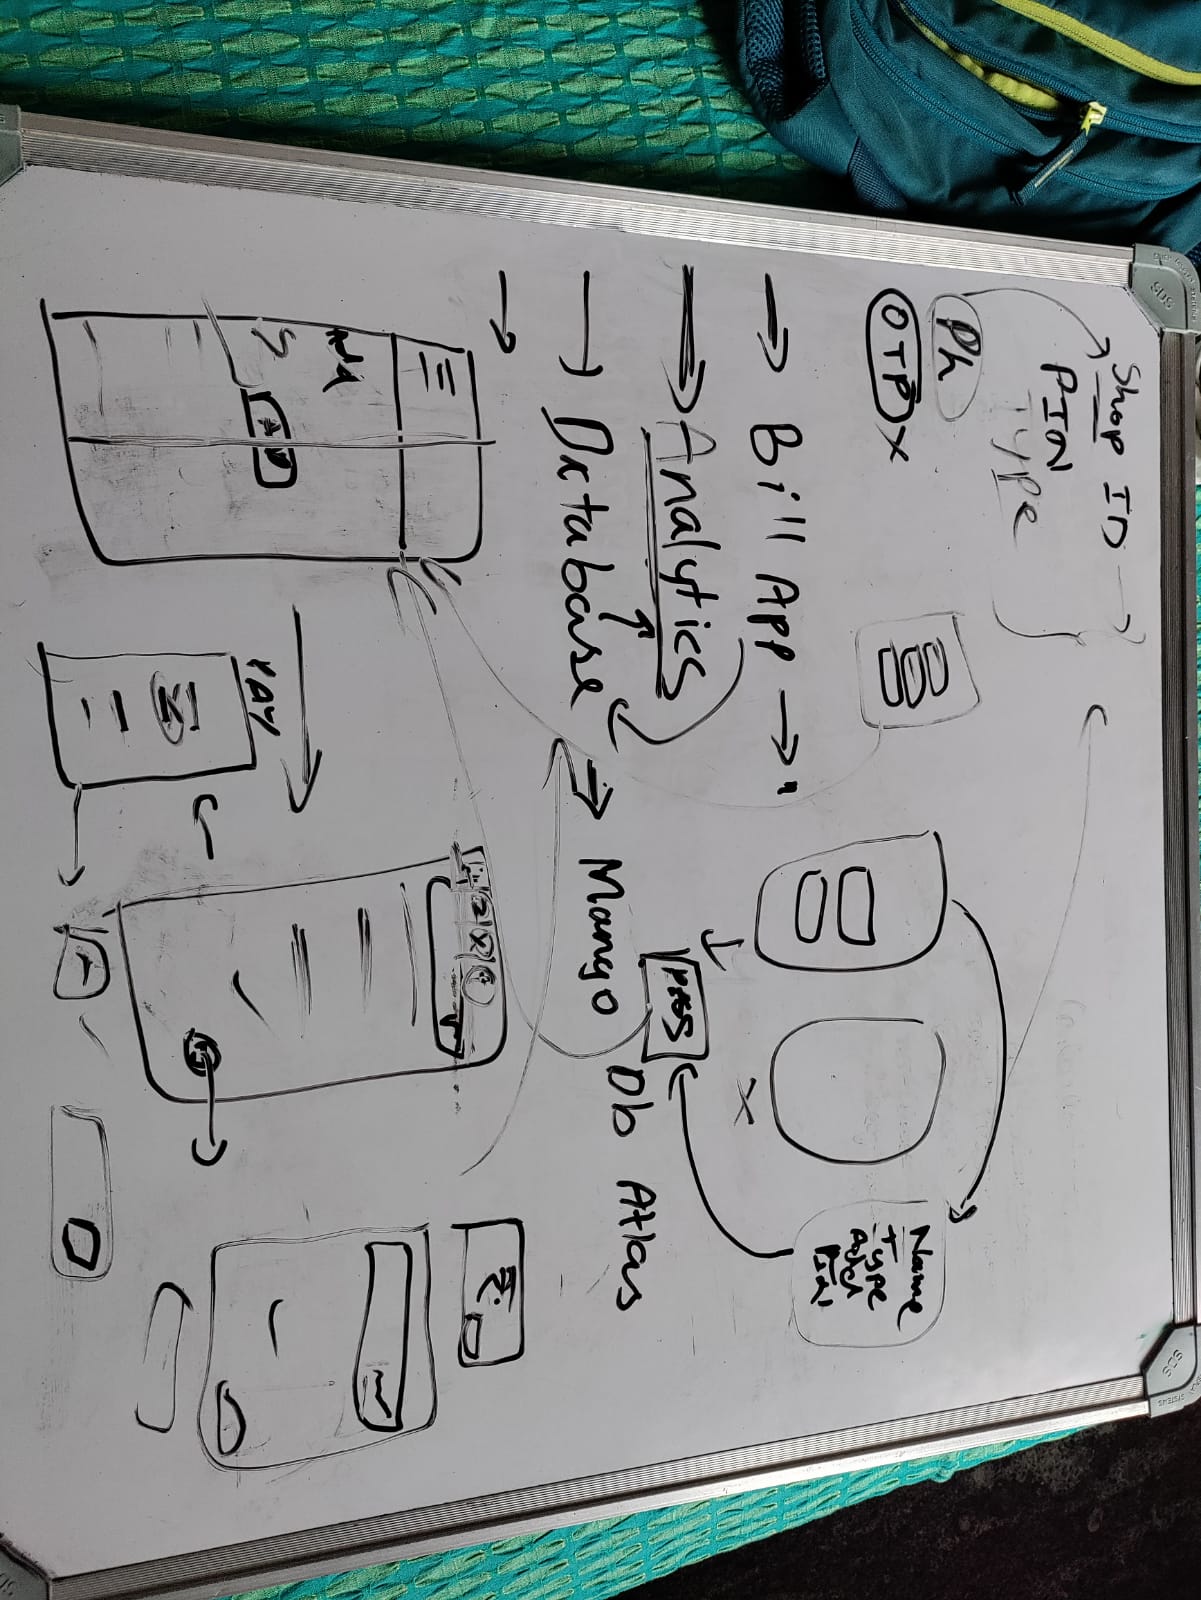 SDS
SDS
Shop ID
PIN
Type
Ph
OTP x
Name
Type
Add
PIN
Bill App
Analytics
Database
Mango Db Atlas
₹
Add
PAY